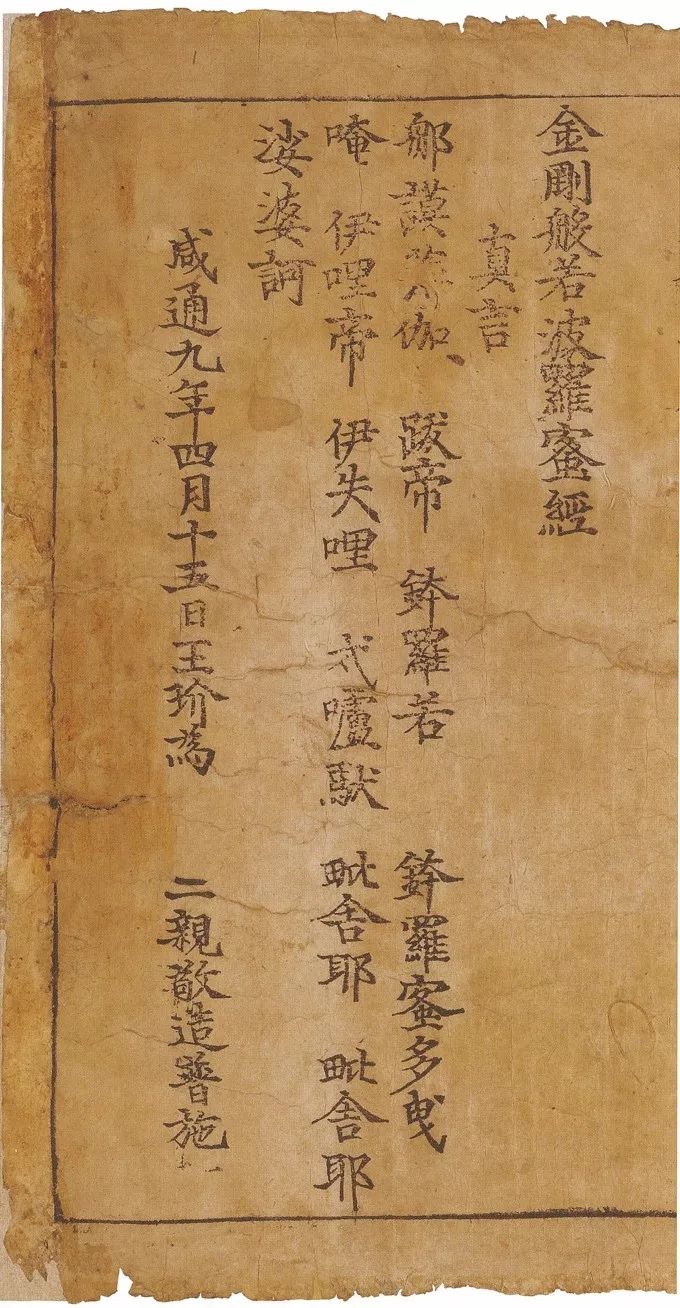 金剛般若波羅蜜經
真言
那謨伽 跋帝 鉢羅若 鉢羅蜜多曳
唵 伊哩帝 伊失哩 戍嚧馱 毗舍耶 毗舍耶
娑婆訶
咸通九年四月十五日王玠為 二親敬造普施